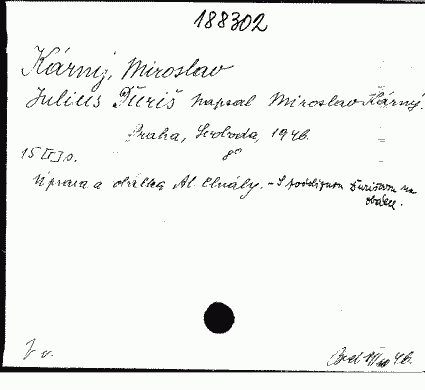 188302
Kárný, Miroslav
Julius Ďuriš napsal Miroslav Kárný.
Praha, Svoboda, 1946.
8°
15 s.
Úprava a obálka Al. Chvály. - S podobiznou Ďurišovou na
obálce.
46.